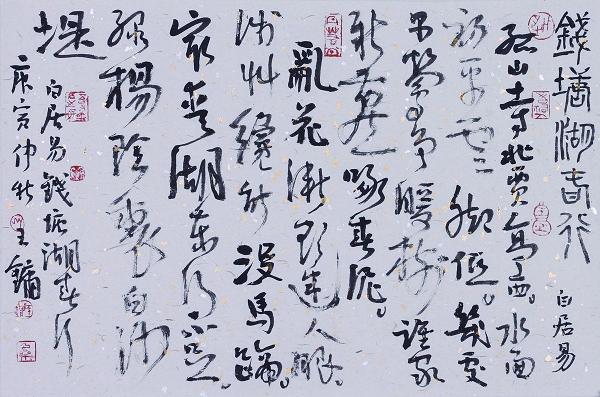 錢塘湖春行
白居易
孤山寺北贾亭西。水面
初平雲脚低。幾处
早鶯争暖樹誰家
新燕啄春泥。
亂花漸欲迷人眼。
淺艸纔能没馬蹄。
最愛湖東行不足。
绿楊陰裏白沙
堤
白居易錢塘湖春行
庚寅仲秋王鏞